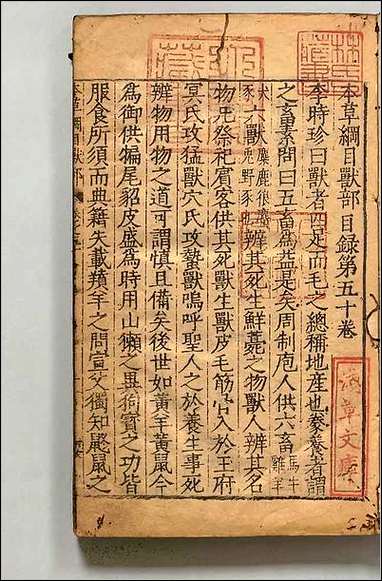 本草綱目獸部目錄第五十卷
李時珍曰獸者四足而毛之總稱地產也豢養者謂
之畜素問曰五畜爲益是矣周制庖人供六畜馬牛雞羊
犬豕六獸麋鹿狼麕兎野豕也辨其死生鮮薨之物獸人辨其名
物凡祭祀賓客供其死獸生獸皮毛筋骨入於王府
冥氏攻猛獸穴氏攻蟄獸嗚呼聖人之於養生事死
辨物用物之道可謂愼且備矣後世如黃羊黃鼠今
為御供犏尾貂皮盛為時用山獺之異狗寶之功皆
服食所須而典籍失載羵羊之問宣父獨知鼮鼠之
本草綱目獸部
草文庫